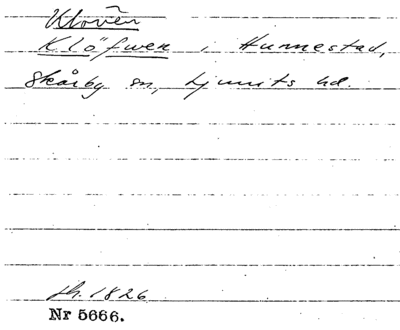 Klovën
Klöfwen, i Hunnestad,
Skårby sn, Ljunits hd.
fh. 1826
Nr 5666.